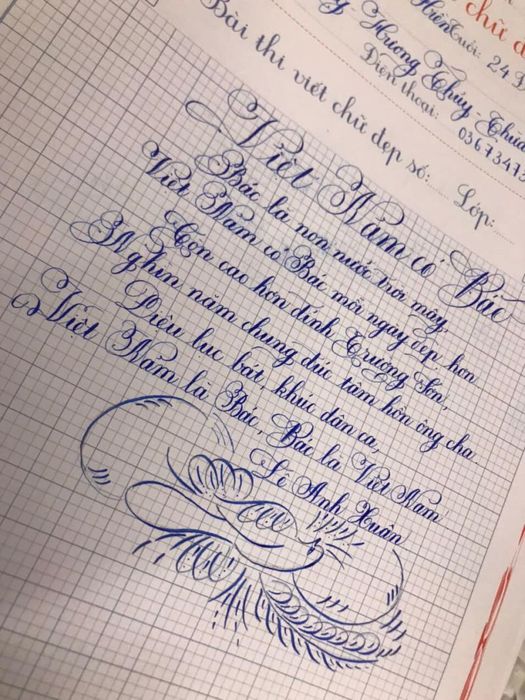 chữ đ
Hiền Tuổi: 24
Hương Thúy
Điện thoại: 03673473
Bài thi viết chữ đẹp số: Lớp:
Việt Nam có Bác
Bác là non nước trời mây,
Việt Nam có Bác mỗi ngày đẹp hơn
Còn cao hơn đỉnh Trường Sơn,
Nghìn năm chung đúc tâm hồn ông cha.
Điệu lục bát, khúc dân ca,
Việt Nam là Bác, Bác là Việt Nam
Lê Anh Xuân